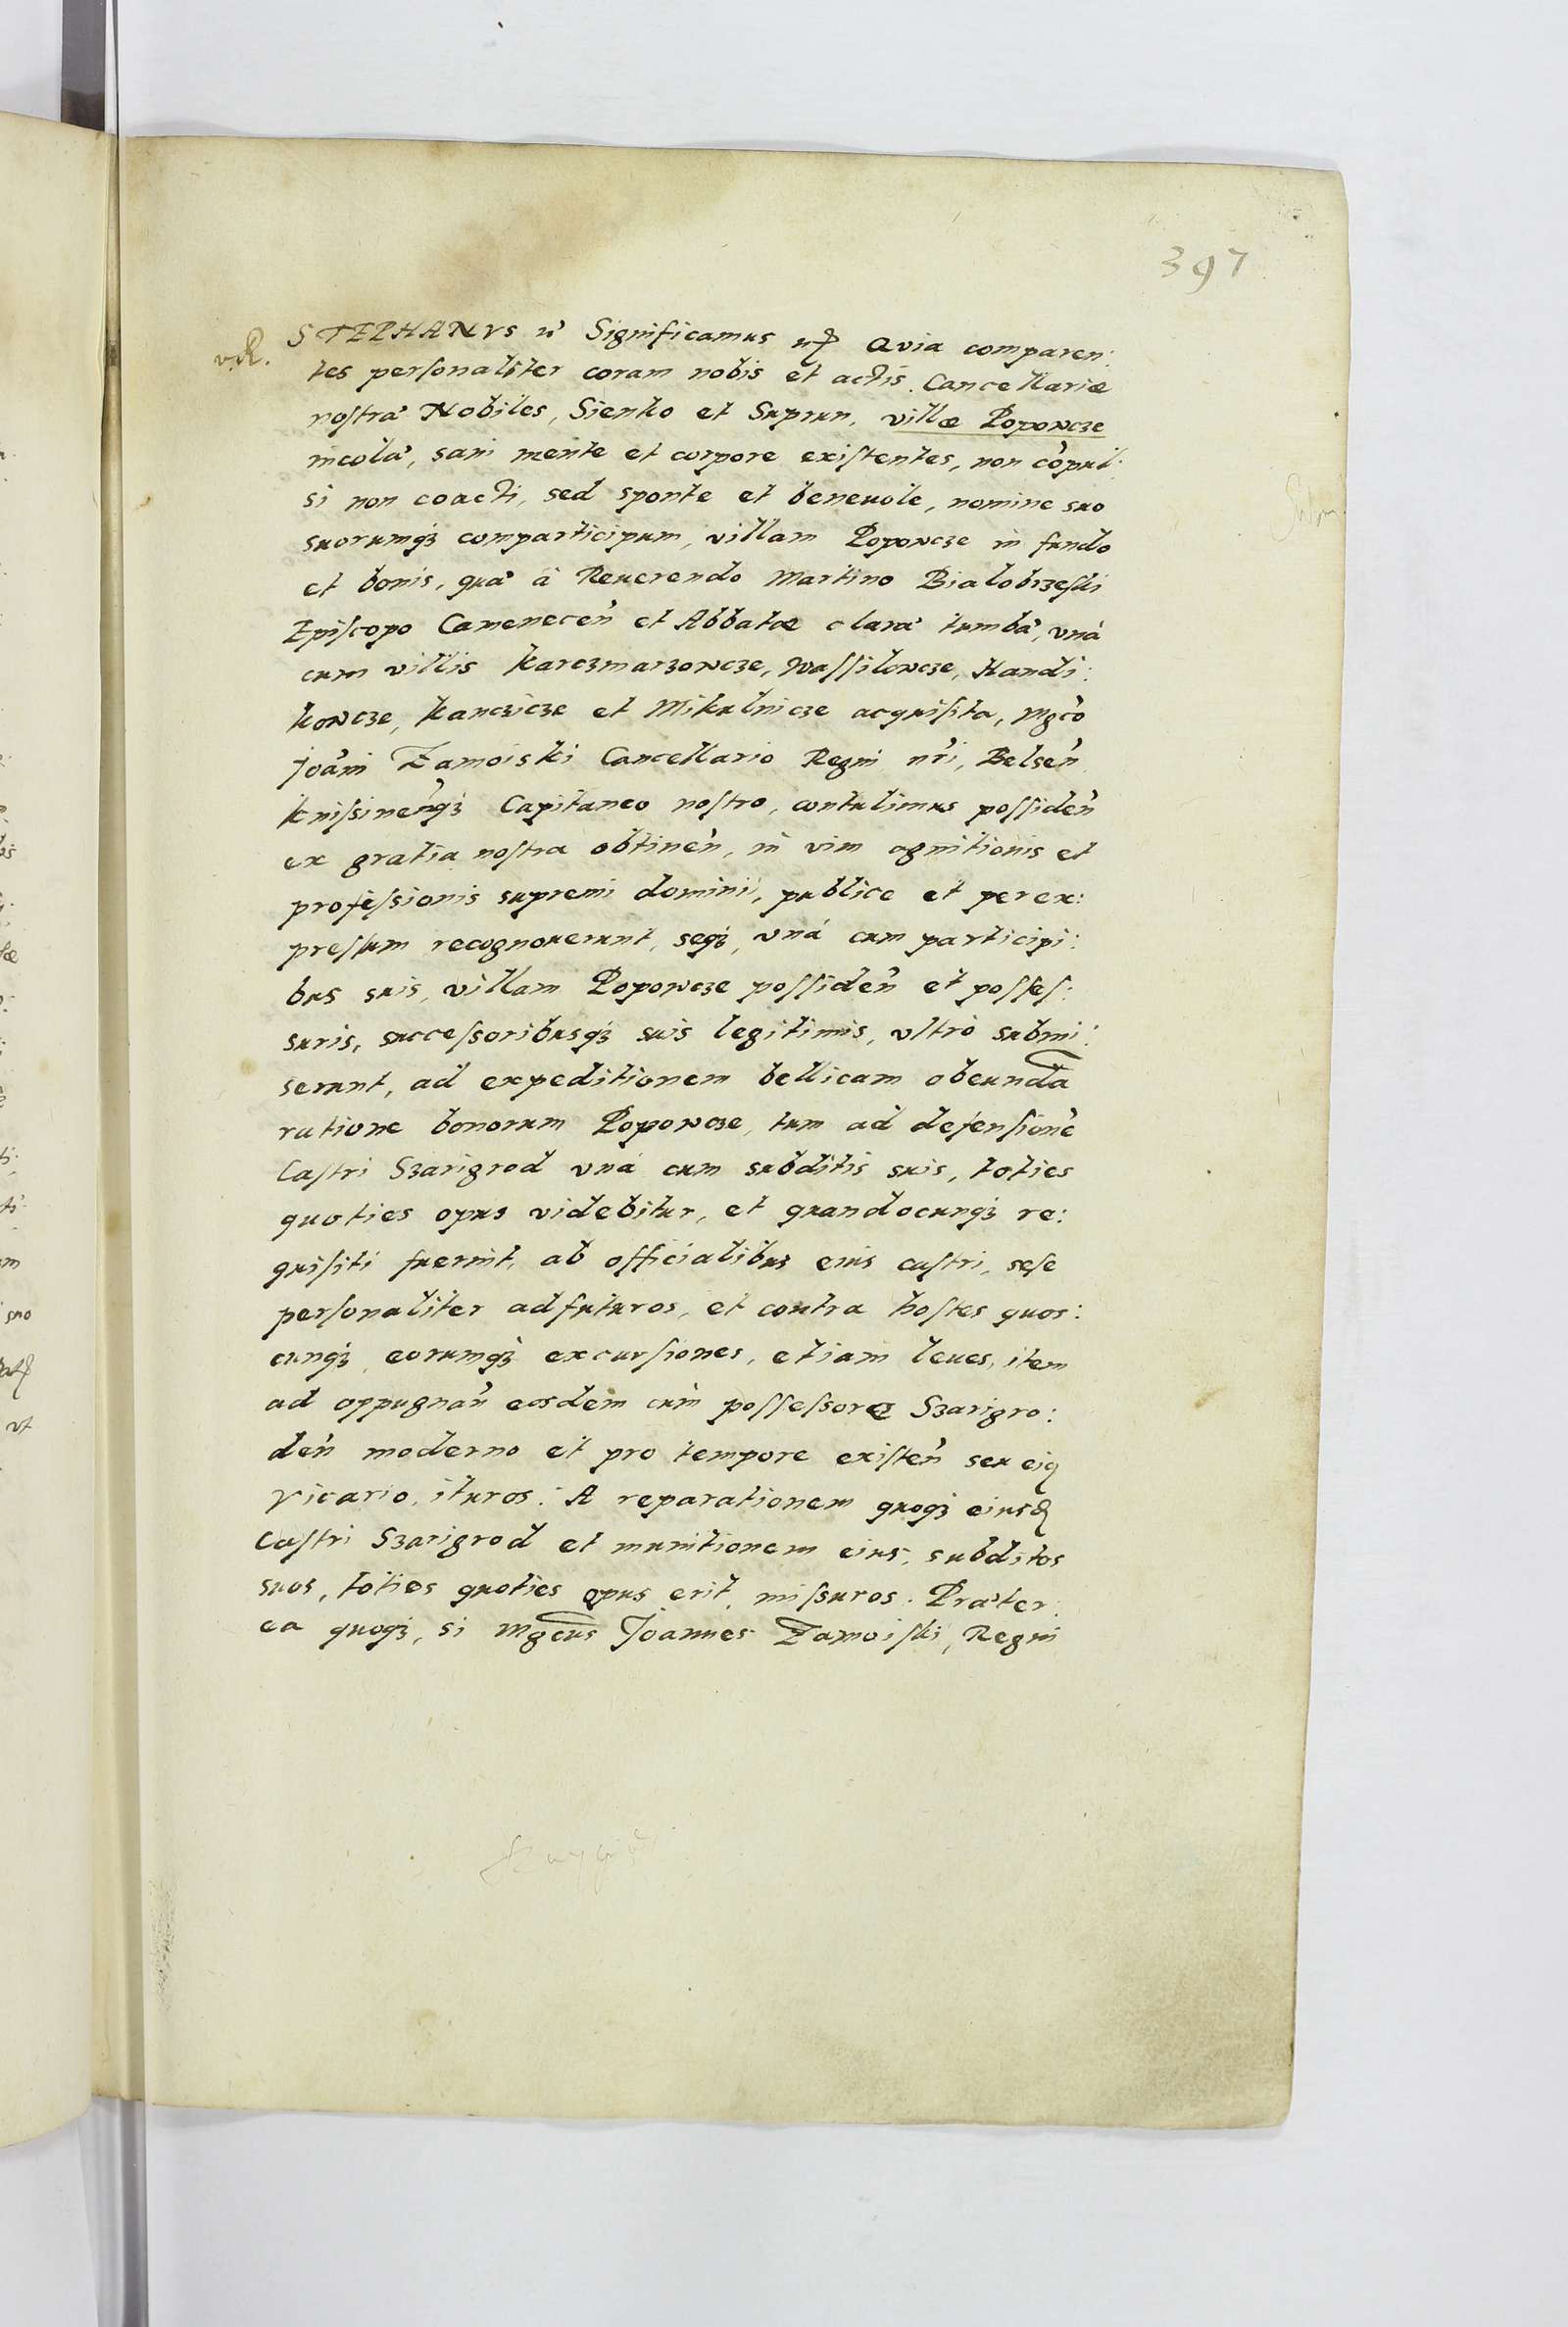 397
STEPHANVS Significamus Quia comparen:
tes personaliter coram nobis et actis Cancellariæ
nostræ Nobiles, Sienko et Suprun, villæ Popowcze
incolæ, sani mente et corpore existentes, non cōpul:
si non coacti, sed sponte et beneuole, nomine suo
suorumqꝫ comparticipum, villam Popowcze in fundo
et bonis, quæ à Reuerendo Martino Bialobrzeski
Episcopo Camenecen̄ et Abbatæ claræ tumbæ, vná
cum villis Karczmarzowcze, Wassilowcze, Handi:
kowcze, Kanczicze et Mikulnicze acquisita, Mgc̄o
Joān̄i Zamoiski Cancellario Regni nr̄i, Belsen̄
Knissinen̄qꝫ Capitaneo nostro, contulimus possiden̄
ex gratia nostra obtinen̄, in vim agnitionis et
professionis supremi dominii, publice et per ex:
pressum recognouerunt, seqꝫ, vná cum participi:
bus suis, villam Popowcze possiden̄ et posses:
suris, successoribusqꝫ suis legitimis, vltrò submi:
serunt, ad expeditionem bellicam obeundā
ratione bonorum Popowcze, tum ad defensionē
Castri Szarigrod vná cum subditis suis, toties
quoties opus videbitur, et quandocunqꝫ re:
quisiti fuerint, ab officialibus eius castri, sese
personaliter adfuturos, et contra hostes quos:
cunqꝫ eorumqꝫ excursiones, etiam leues, item
ad oppugnan̄ eosdem cum possessore Szarigro:
den̄ moderno et pro tempore existen̄ seu eiꝯ
Vicario, ituros. A reparationem quoqꝫ eiusd
Castri Szarigrod et munitionem eius, subditos
suos, toties quoties opus erit, missuros. Præter:
ea quoqꝫ, si Mgcus Joannes Zamoiski, Regni